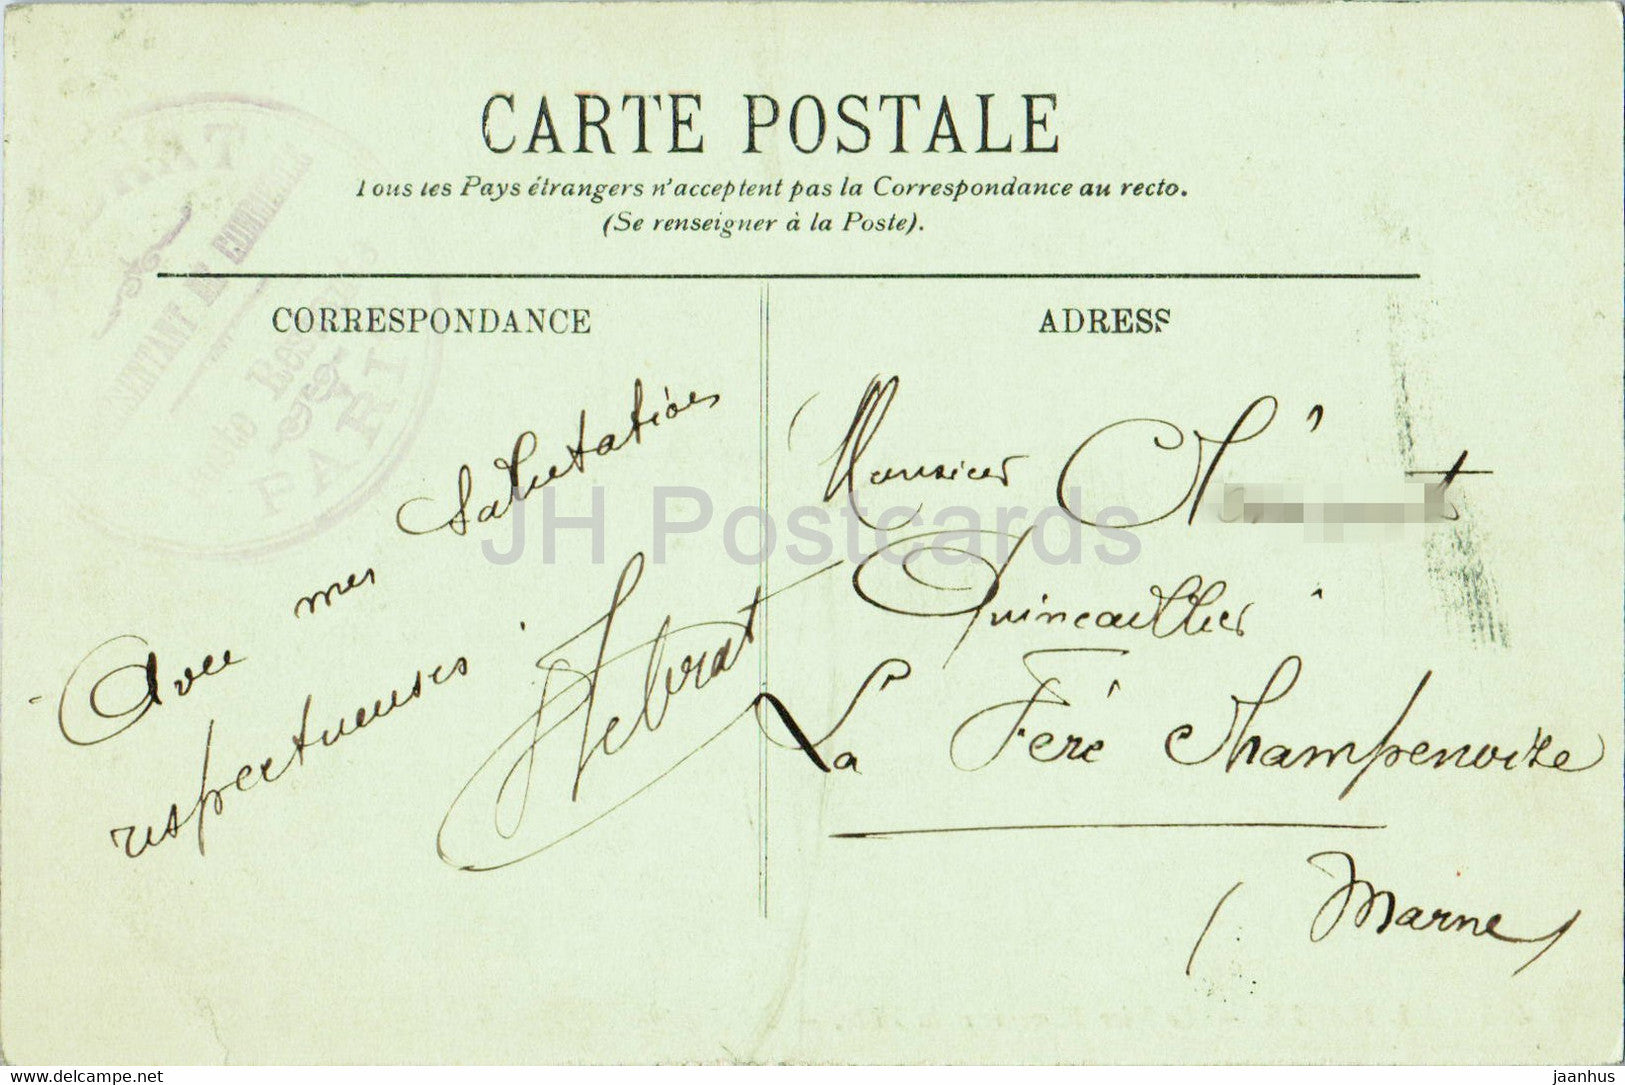 CARTE POSTALE
Tous les Pays étrangers n'acceptent pas la Correspondance au recto.
(Se renseigner à la Poste).
CORRESPONDANCE
ADRESS
Avec mes Salutations
respectueuses.
Febvrat
Monsieur
Quincaillier
La Fère Champenoise
(Marne)
PARIS
JH Postcards
www.delcampe.net
jaanhus